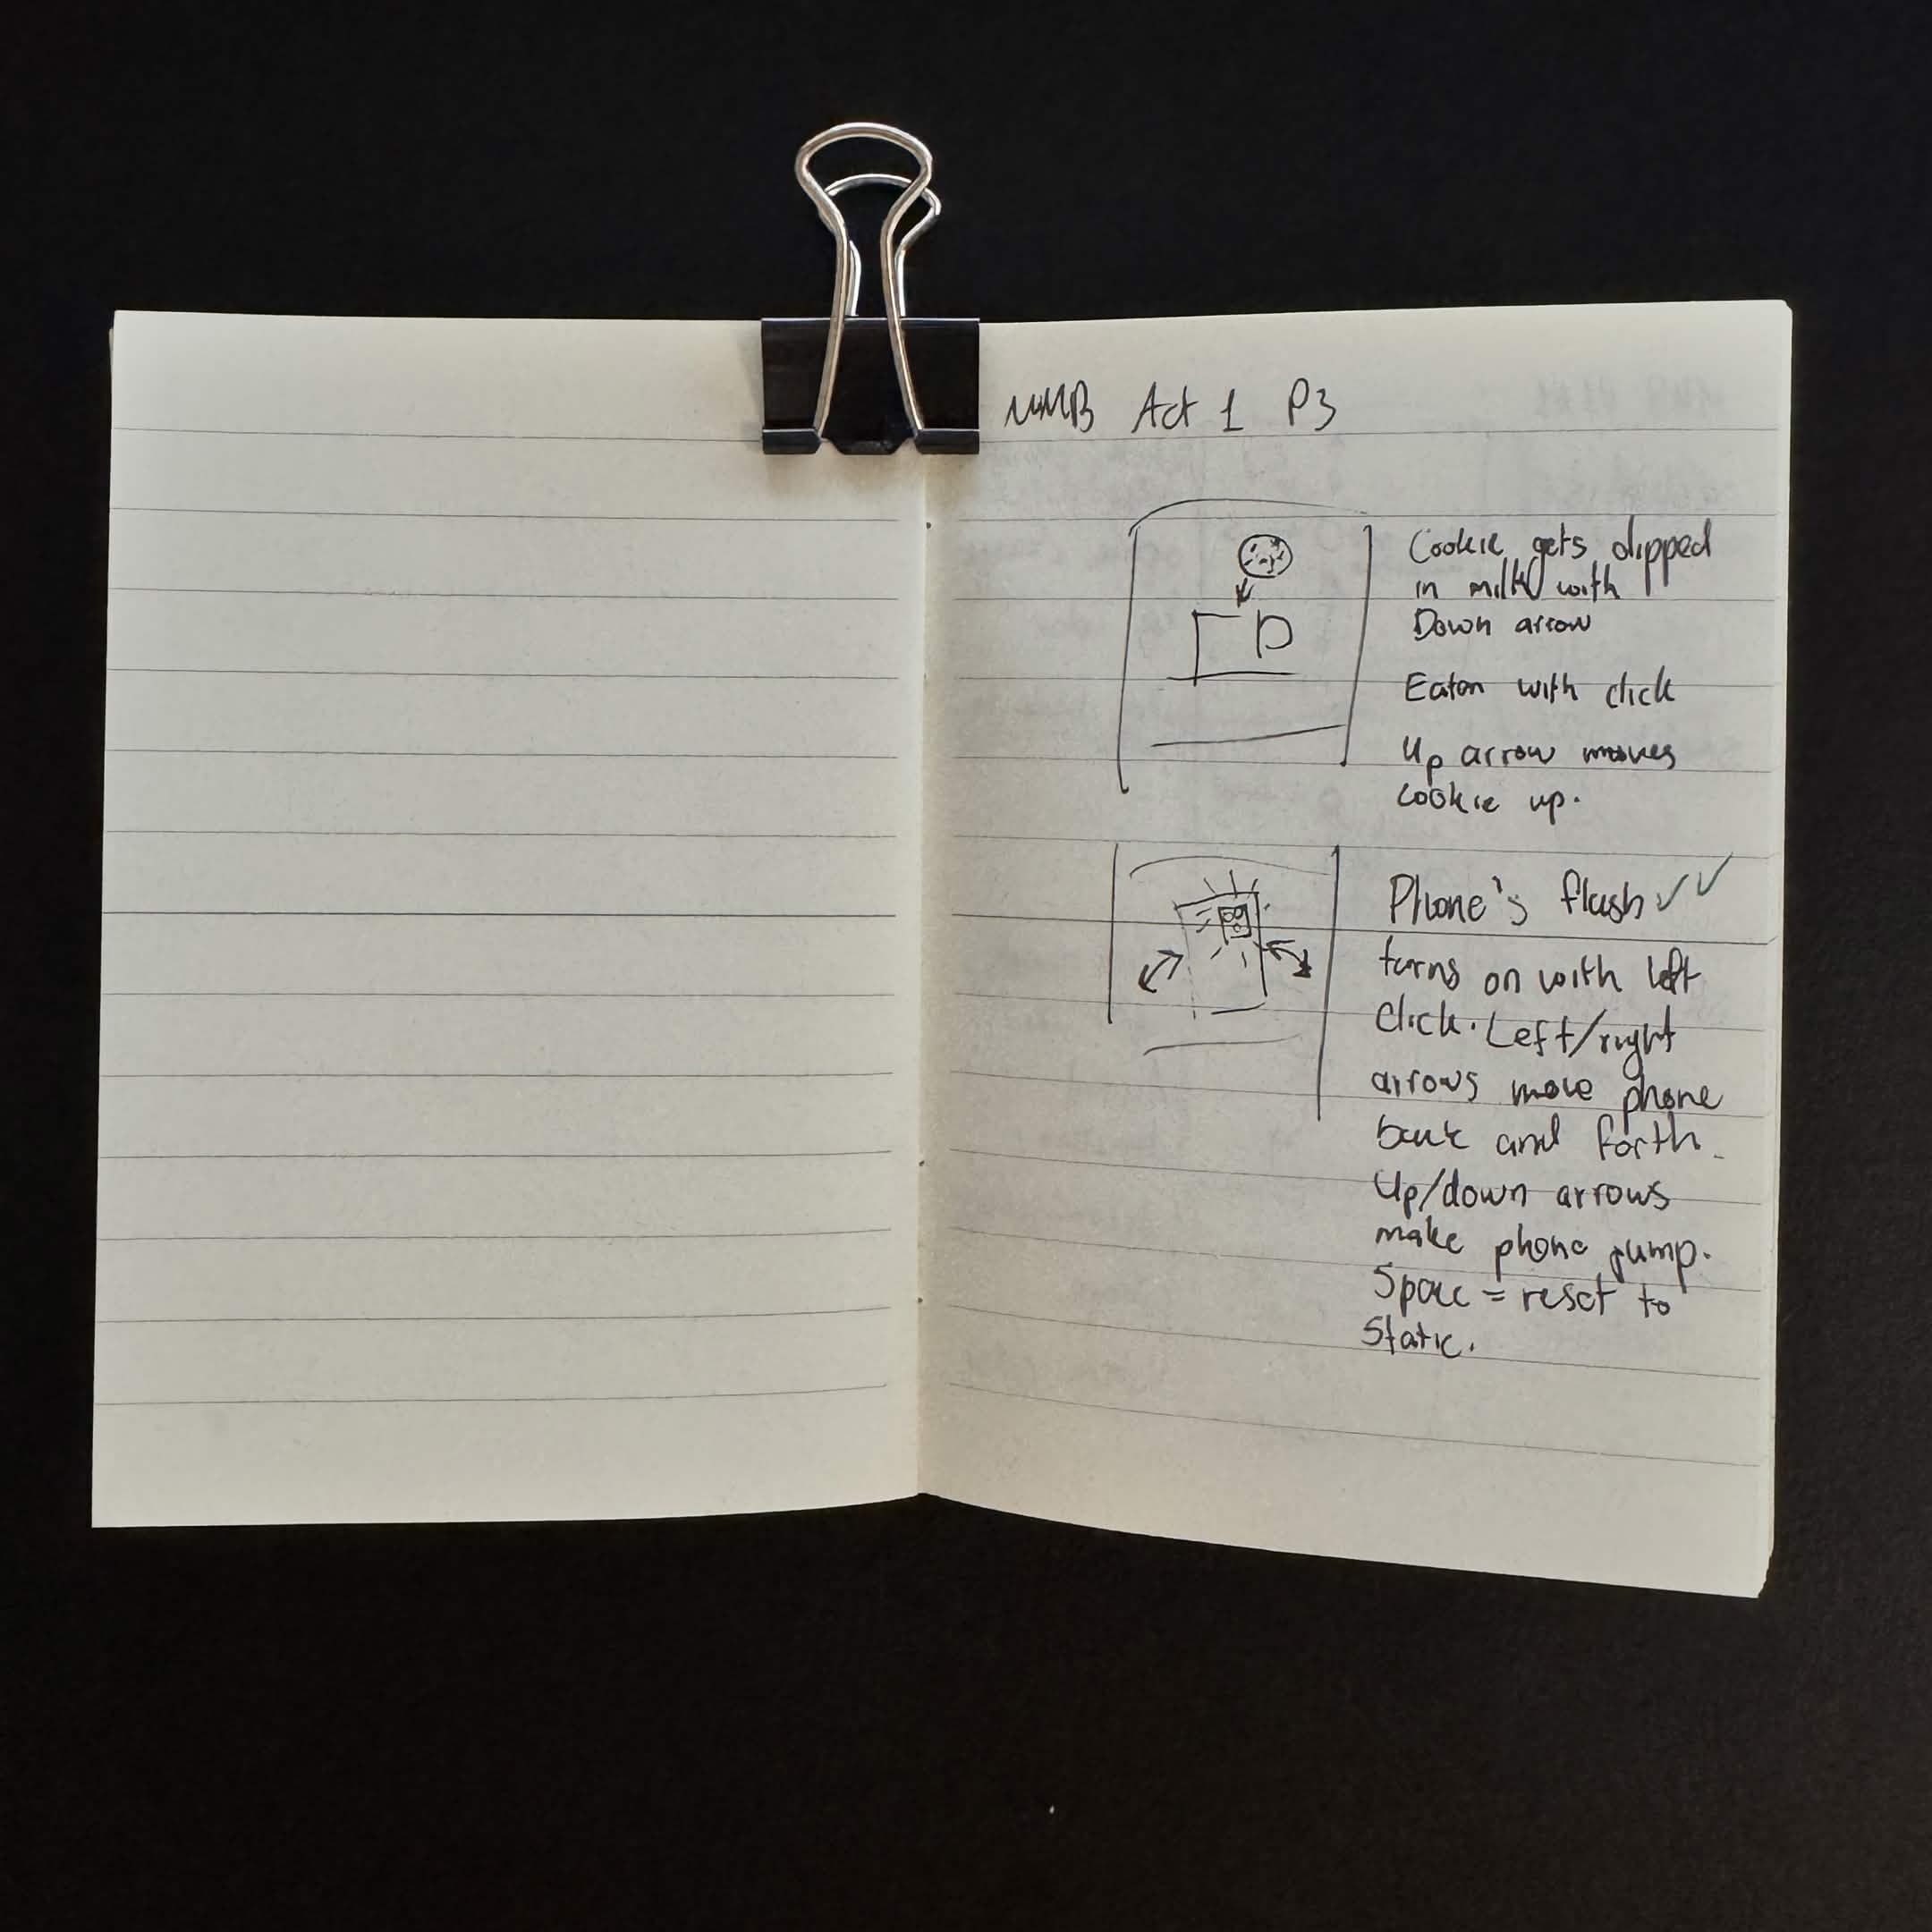 NMB Act 1 P3
Cookie gets dipped
in milk with
Down arrow
Eaten with click
Up arrow moves
cookie up.
Phone's flash ✓✓
turns on with left
click. Left/right
arrows move phone
back and forth.
Up/down arrows
make phone jump.
Space = reset to
Static.